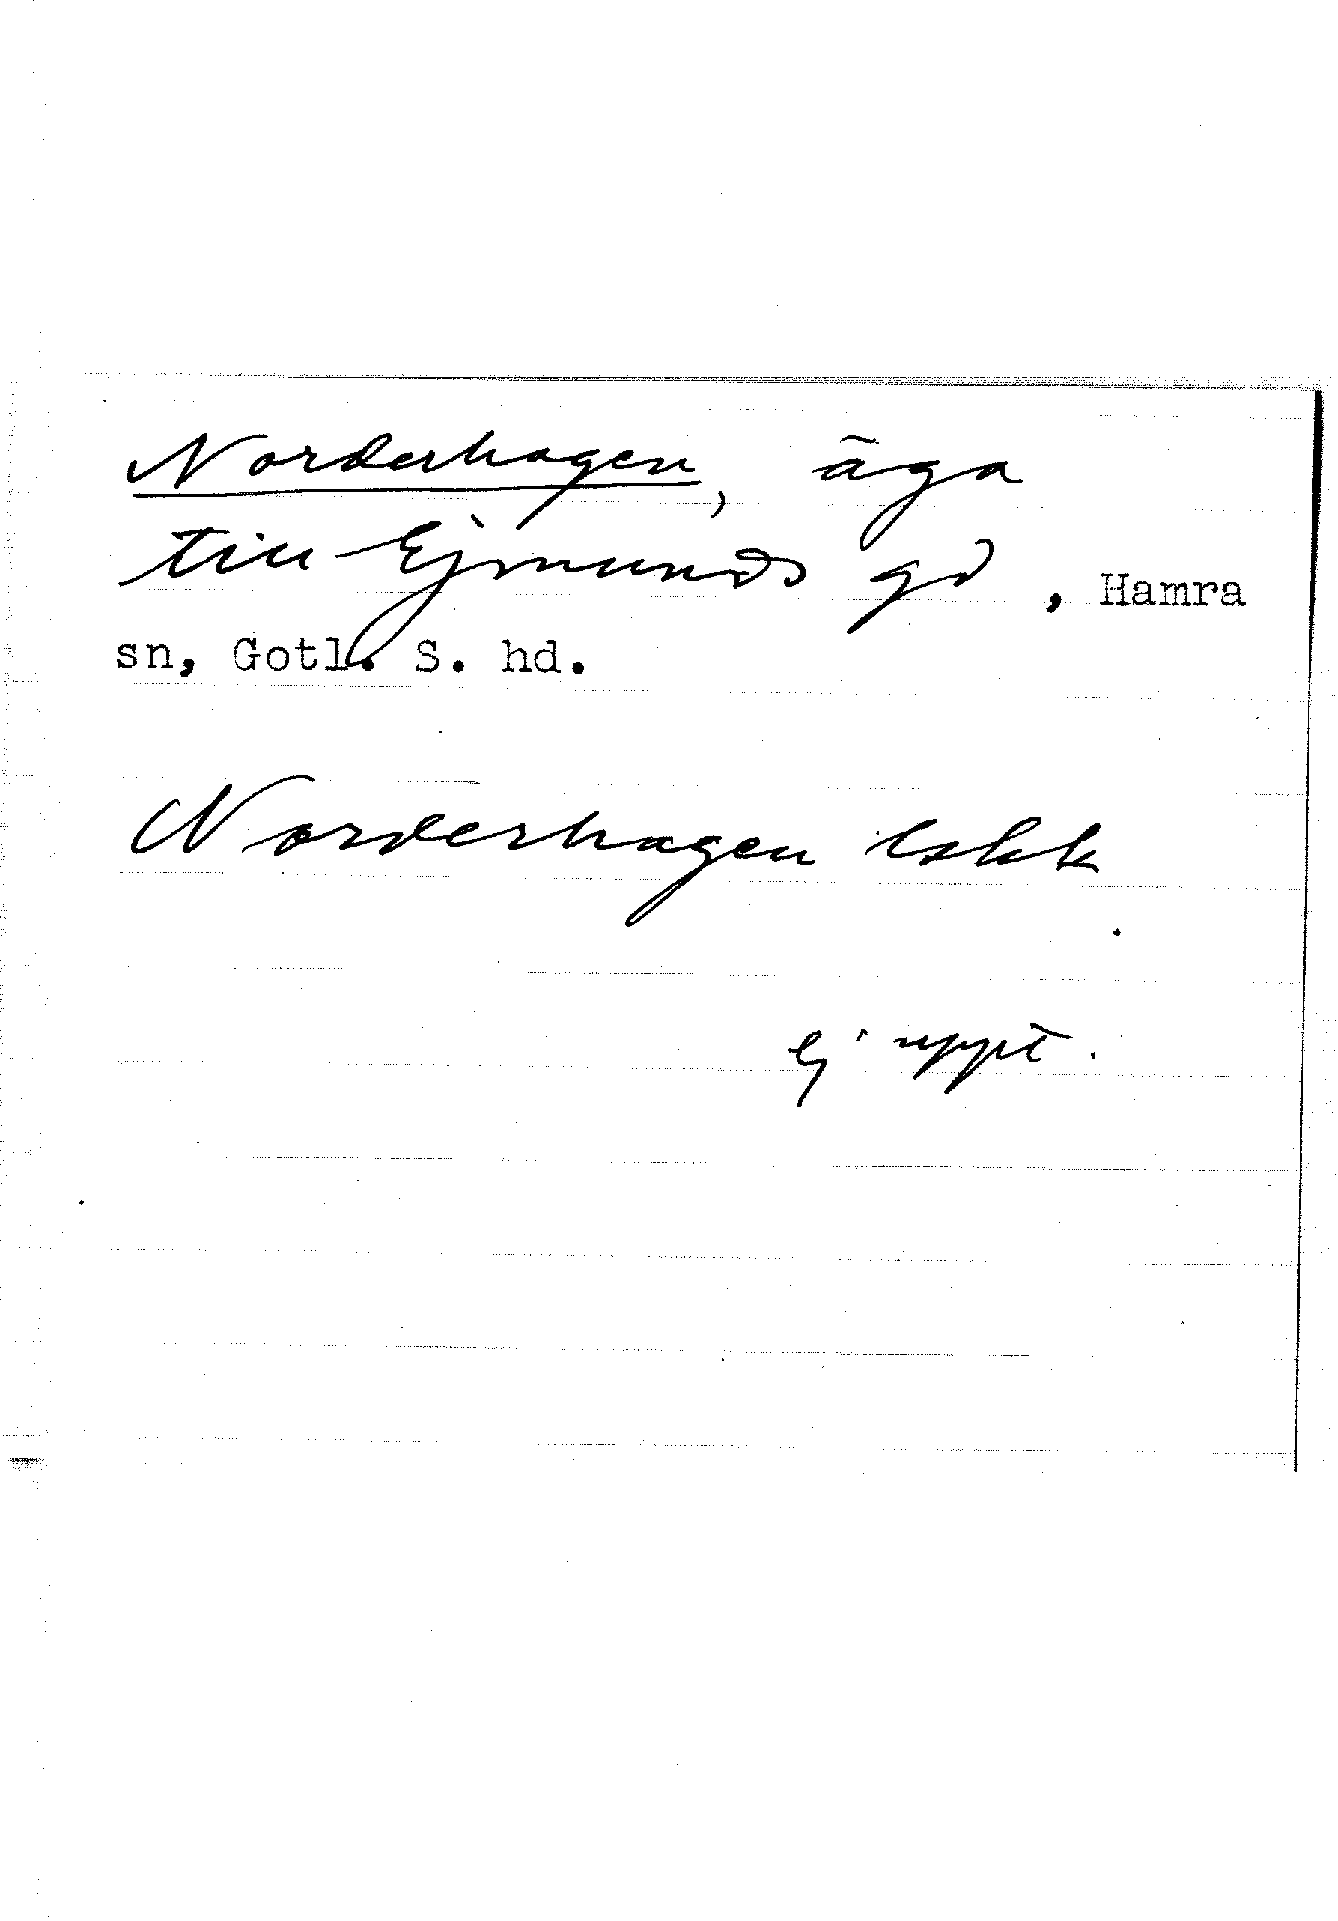 Norderhagen, äga
till Ejmunds gd , Hamra
sn, Gotl. S. hd.
Norderhagen Eskk
ej uppt.